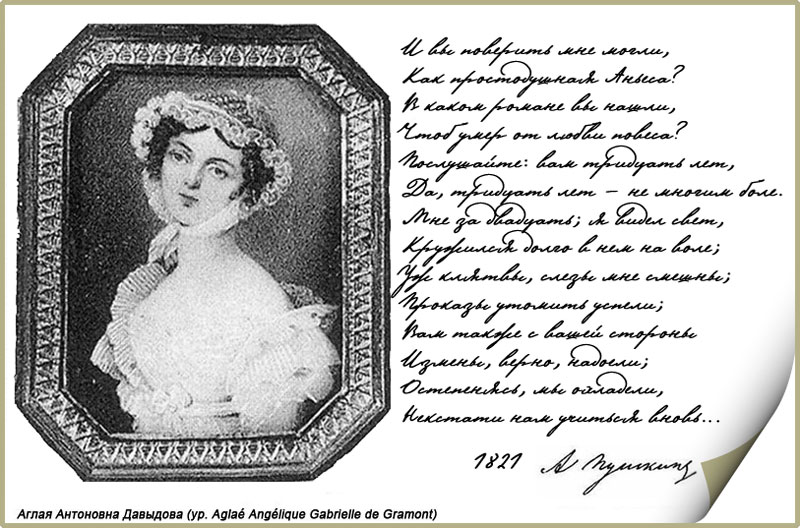 И вы поверить мне могли,
Как простодушная Аньеса?
В каком романе вы нашли,
Чтоб умер от любви повеса?
Послушайте: вам тридцать лет,
Да, тридцать лет – не многим боле.
Мне за двадцать; я видел свет,
Кружился долго в нем на воле;
Уж клятвы, слезы мне смешны;
Проказы утомить успели;
Вам также с вашей стороны
Измены, верно, надоели;
Остепенясь, мы охладели,
Некстати нам учиться вновь...
1821 А Пушкинъ
Аглая Антоновна Давыдова (ур. Aglaé Angélique Gabrielle de Gramont)